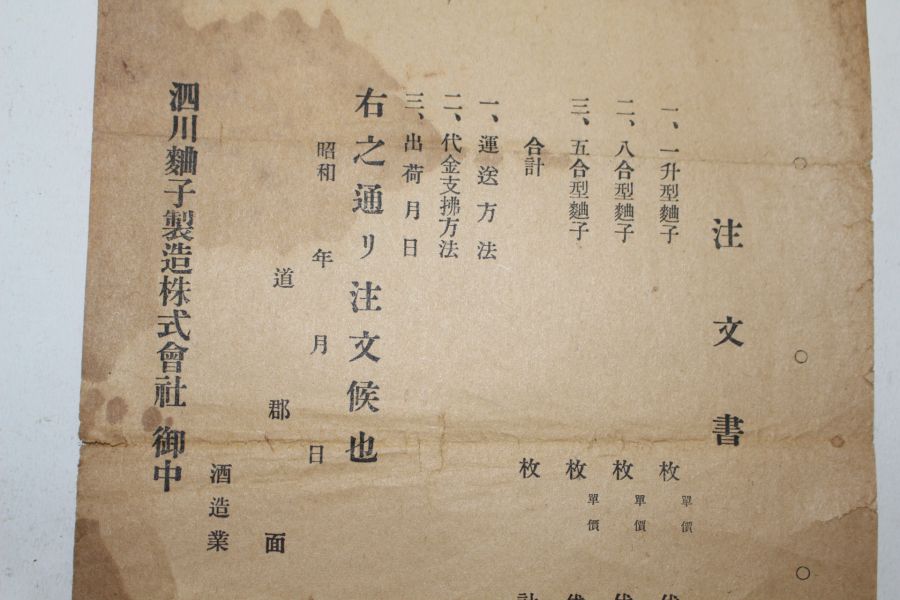 注文書
一、一升型麯子 枚 單價
二、八合型麯子 枚 單價
三、五合型麯子 枚 單價
合計 枚
一、運送方法
二、代金支拂方法
三、出荷月日
右之通リ注文候也
昭和 年 月 日
道 郡 面
酒造業
泗川麯子製造株式會社 御中